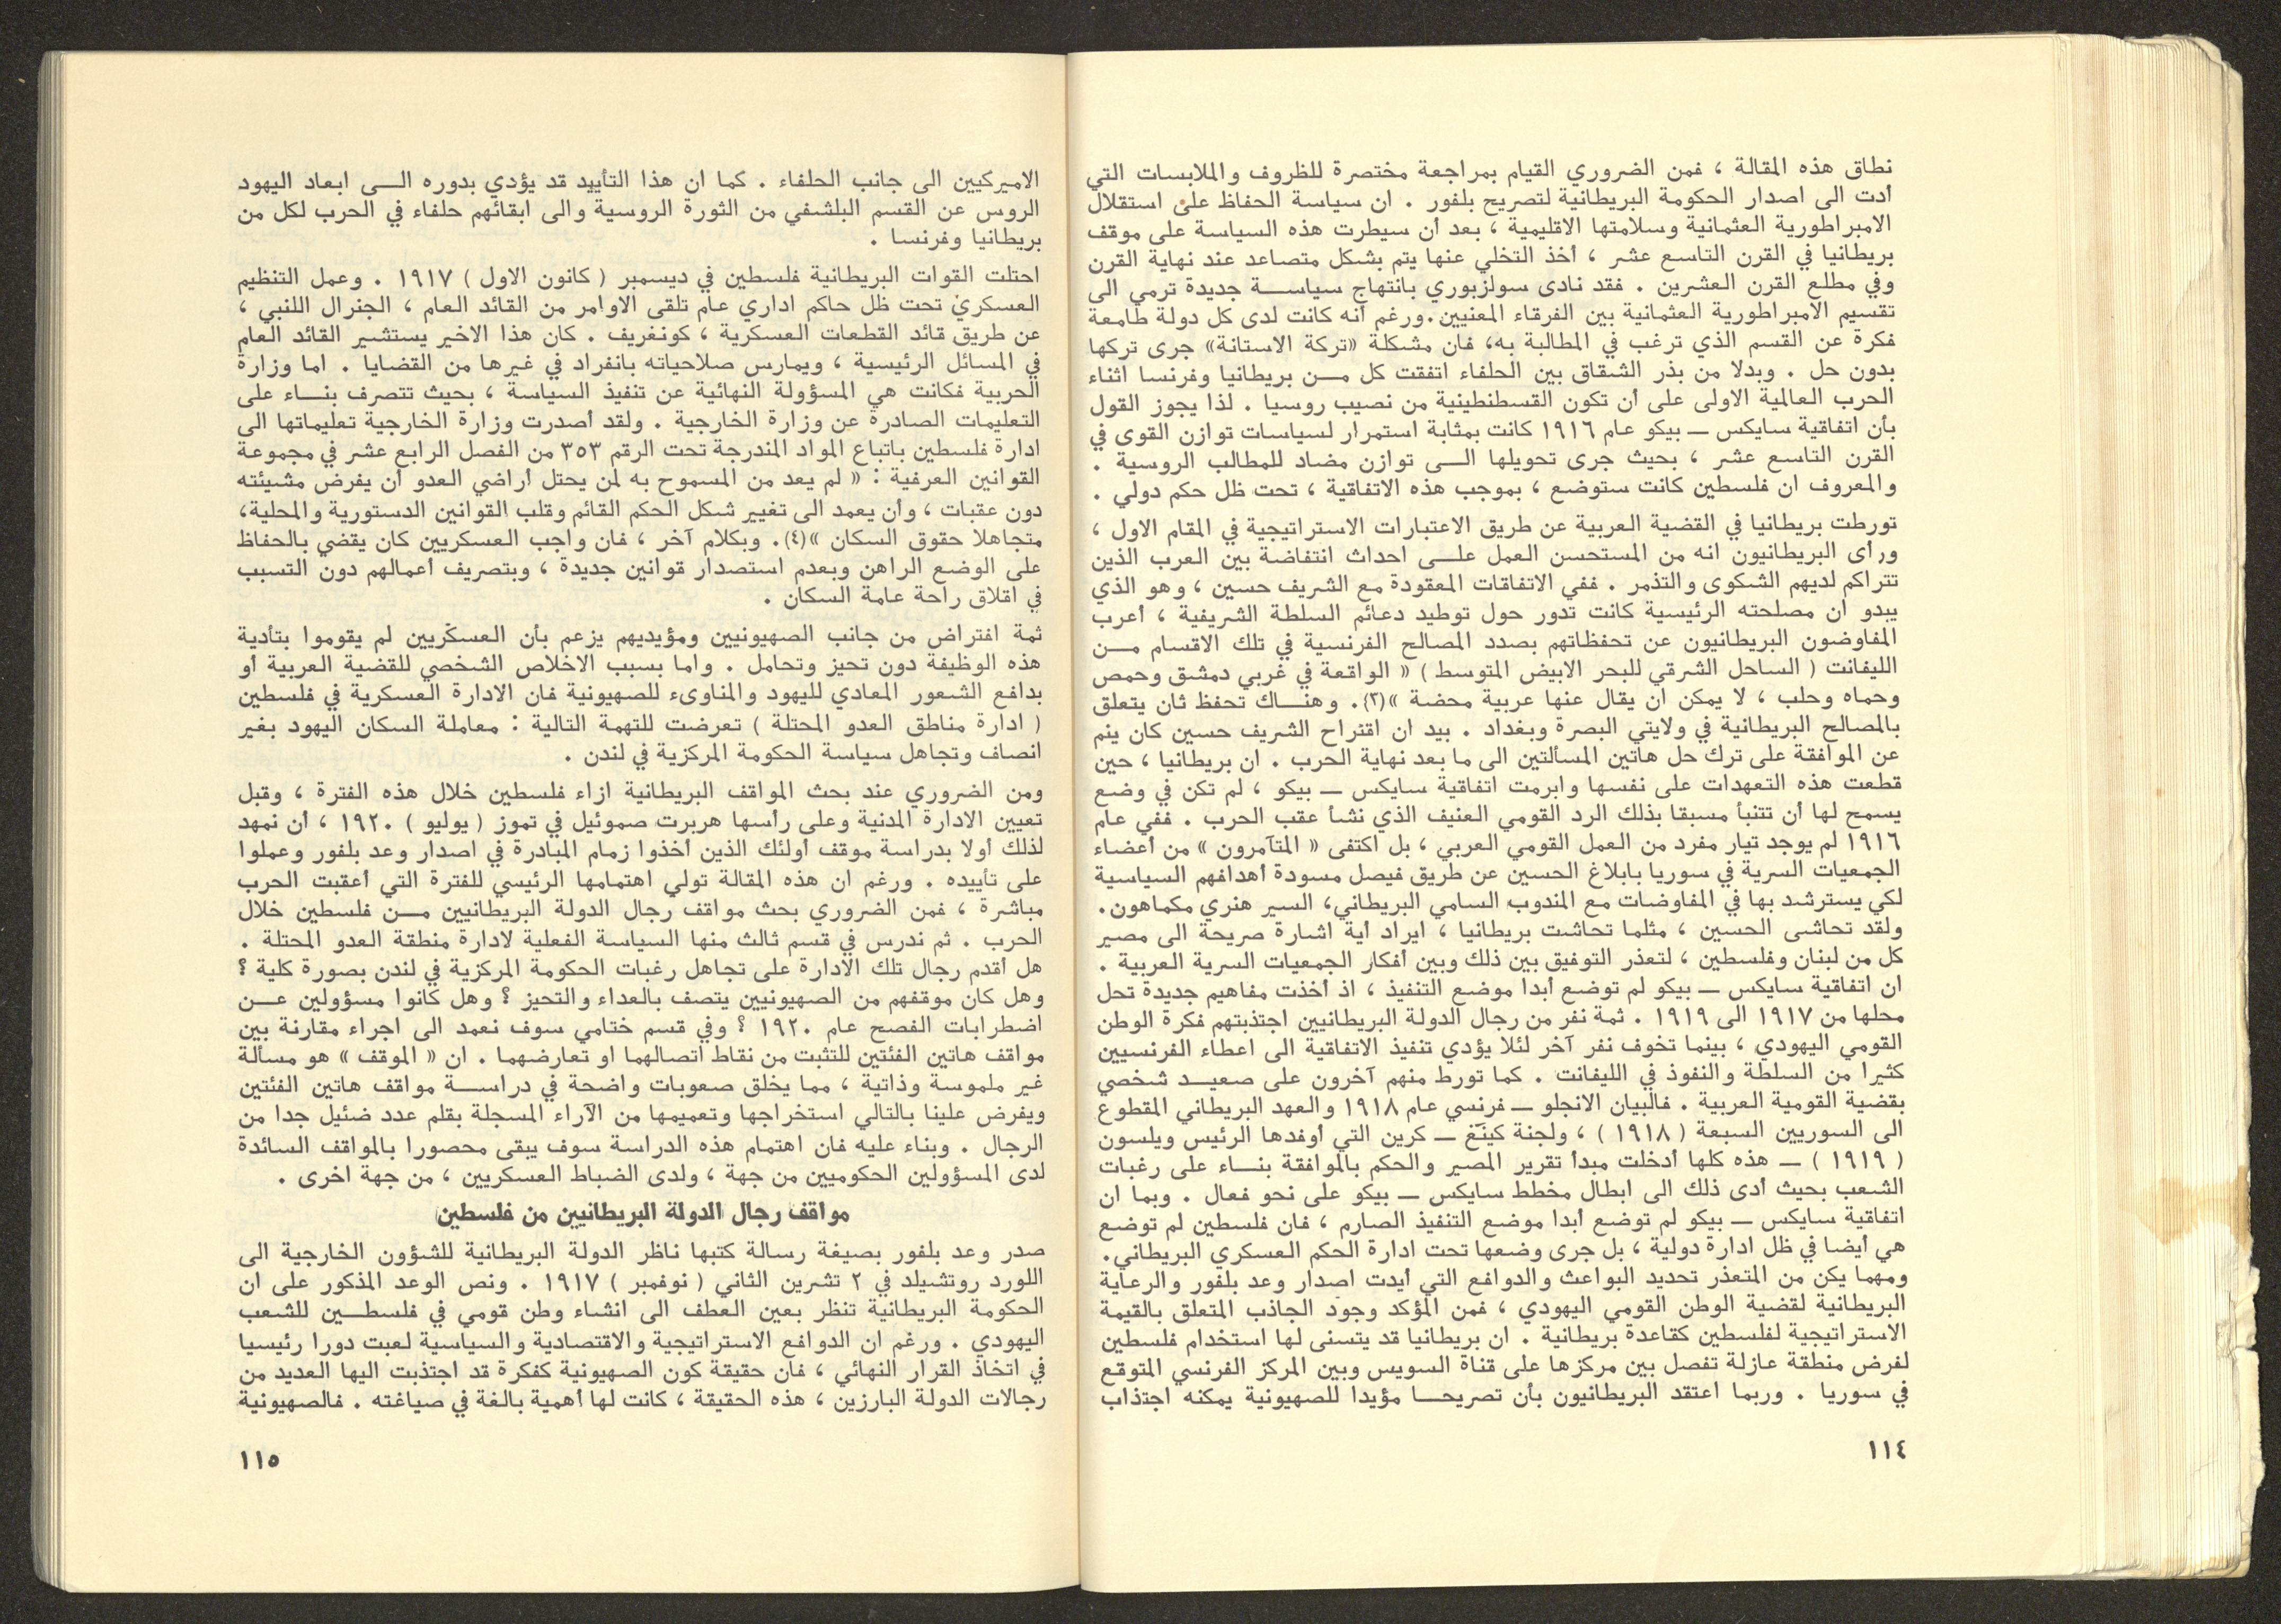 نطاق هذه المقالة ، فمن الضروري القيام بمراجعة مختصرة للظروف والملابسات التي
أدت الى اصدار الحكومة البريطانية لتصريح بلفور . ان سياسة الحفاظ على استقلال
الامبراطورية العثمانية وسلامتها الاقليمية ، بعد أن سيطرت هذه السياسة على موقف
بريطانيا في القرن التاسع عشر ، أخذ التخلي عنها يتم بشكل متصاعد عند نهاية القرن
وفي مطلع القرن العشرين . فقد نادى سولزبوري بانتهاج سياســة جديدة ترمي الى
تقسيم الامبراطورية العثمانية بين الفرقاء المعنيين.ورغم أنه كانت لدى كل دولة طامعة
فكرة عن القسم الذي ترغب في المطالبة به، فان مشكلة «تركة الاستانة» جرى تركها
بدون حل . وبدلا من بذر الشقاق بين الحلفاء اتفقت كل مــن بريطانيا وفرنسا اثناء
الحرب العالمية الاولى على أن تكون القسطنطينية من نصيب روسيا . لذا يجوز القول
بأن اتفاقية سايكس ــ بيكو عام ١٩١٦ كانت بمثابة استمرار لسياسات توازن القوى في
القرن التاسع عشر ، بحيث جرى تحويلها الــى توازن مضاد للمطالب الروسية .
والمعروف ان فلسطين كانت ستوضع ، بموجب هذه الاتفاقية ، تحت ظل حكم دولي .
تورطت بريطانيا في القضية العربية عن طريق الاعتبارات الاستراتيجية في المقام الاول ،
ورأى البريطانيون انه من المستحسن العمل علــى احداث انتفاضة بين العرب الذين
تتراكم لديهم الشكوى والتذمر . ففي الاتفاقات المعقودة مع الشريف حسين ، وهو الذي
يبدو ان مصلحته الرئيسية كانت تدور حول توطيد دعائم السلطة الشريفية ، أعرب
المفاوضون البريطانيون عن تحفظاتهم بصدد المصالح الفرنسية في تلك الاقسام مــن
الليفانت ( الساحل الشرقي للبحر الابيض المتوسط ) « الواقعة في غربي دمشق وحمص
وحماه وحلب ، لا يمكن ان يقال عنها عربية محضة »(٣). وهنــاك تحفظ ثان يتعلق
بالمصالح البريطانية في ولايتي البصرة وبغداد . بيد ان اقتراح الشريف حسين كان ينم
عن الموافقة على ترك حل هاتين المسألتين الى ما بعد نهاية الحرب . ان بريطانيا ، حين
قطعت هذه التعهدات على نفسها وابرمت اتفاقية سايكس ــ بيكو ، لم تكن في وضع
يسمح لها أن تتنبأ مسبقا بذلك الرد القومي العنيف الذي نشأ عقب الحرب . ففي عام
١٩١٦ لم يوجد تيار مفرد من العمل القومي العربي ، بل اكتفى « المتآمرون » من أعضاء
الجمعيات السرية في سوريا بابلاغ الحسين عن طريق فيصل مسودة أهدافهم السياسية
لكي يسترشد بها في المفاوضات مع المندوب السامي البريطاني، السير هنري مكماهون.
ولقد تحاشى الحسين ، مثلما تحاشت بريطانيا ، ايراد أية اشارة صريحة الى مصير
كل من لبنان وفلسطين ، لتعذر التوفيق بين ذلك وبين أفكار الجمعيات السرية العربية .
ان اتفاقية سايكس ــ بيكو لم توضع أبدا موضع التنفيذ ، اذ أخذت مفاهيم جديدة تحل
محلها من ١٩١٧ الى ١٩١٩ . ثمة نفر من رجال الدولة البريطانيين اجتذبتهم فكرة الوطن
القومي اليهودي ، بينما تخوف نفر آخر لئلا يؤدي تنفيذ الاتفاقية الى اعطاء الفرنسيين
كثيرا من السلطة والنفوذ في الليفانت . كما تورط منهم آخرون على صعيــد شخصي
بقضية القومية العربية . فالبيان الانجلو ــ فرنسي عام ١٩١٨ والعهد البريطاني المقطوع
الى السوريين السبعة ( ١٩١٨ ) ، ولجنة كينغ ــ كرين التي أوفدها الرئيس ويلسون
( ١٩١٩ ) ــ هذه كلها أدخلت مبدأ تقرير المصير والحكم بالموافقة بنــاء على رغبات
الشعب بحيث أدى ذلك الى ابطال مخطط سايكس ــ بيكو على نحو فعال . وبما ان
اتفاقية سايكس ــ بيكو لم توضع أبدا موضع التنفيذ الصارم ، فان فلسطين لم توضع
هي أيضا في ظل ادارة دولية ، بل جرى وضعها تحت ادارة الحكم العسكري البريطاني.
ومهما يكن من المتعذر تحديد البواعث والدوافع التي أيدت اصدار وعد بلفور والرعاية
البريطانية لقضية الوطن القومي اليهودي ، فمن المؤكد وجود الجاذب المتعلق بالقيمة
الاستراتيجية لفلسطين كقاعدة بريطانية . ان بريطانيا قد يتسنى لها استخدام فلسطين
لفرض منطقة عازلة تفصل بين مركزها على قناة السويس وبين المركز الفرنسي المتوقع
في سوريا . وربما اعتقد البريطانيون بأن تصريحــا مؤيدا للصهيونية يمكنه اجتذاب
١١٤
الاميركيين الى جانب الحلفاء . كما ان هذا التأييد قد يؤدي بدوره الــى ابعاد اليهود
الروس عن القسم البلشفي من الثورة الروسية والى ابقائهم حلفاء في الحرب لكل من
بريطانيا وفرنسا .
احتلت القوات البريطانية فلسطين في ديسمبر ( كانون الاول ) ١٩١٧ . وعمل التنظيم
العسكري تحت ظل حاكم اداري عام تلقى الاوامر من القائد العام ، الجنرال اللنبي ،
عن طريق قائد القطعات العسكرية ، كونغريف . كان هذا الاخير يستشير القائد العام
في المسائل الرئيسية ، ويمارس صلاحياته بانفراد في غيرها من القضايا . اما وزارة
الحربية فكانت هي المسؤولة النهائية عن تنفيذ السياسة ، بحيث تتصرف بنــاء على
التعليمات الصادرة عن وزارة الخارجية . ولقد أصدرت وزارة الخارجية تعليماتها الى
ادارة فلسطين باتباع المواد المندرجة تحت الرقم ٣٥٣ من الفصل الرابع عشر في مجموعة
القوانين العرفية : « لم يعد من المسموح به لمن يحتل أراضي العدو أن يفرض مشيئته
دون عقبات ، وأن يعمد الى تغيير شكل الحكم القائم وقلب القوانين الدستورية والمحلية،
متجاهلا حقوق السكان »(٤). وبكلام آخر ، فان واجب العسكريين كان يقضي بالحفاظ
على الوضع الراهن وبعدم استصدار قوانين جديدة ، وبتصريف أعمالهم دون التسبب
في اقلاق راحة عامة السكان .
ثمة افتراض من جانب الصهيونيين ومؤيديهم يزعم بأن العسكريين لم يقوموا بتأدية
هذه الوظيفة دون تحيز وتحامل . واما بسبب الاخلاص الشخصي للقضية العربية أو
بدافع الشعور المعادي لليهود والمناوىء للصهيونية فان الادارة العسكرية في فلسطين
( ادارة مناطق العدو المحتلة ) تعرضت للتهمة التالية : معاملة السكان اليهود بغير
انصاف وتجاهل سياسة الحكومة المركزية في لندن .
ومن الضروري عند بحث المواقف البريطانية ازاء فلسطين خلال هذه الفترة ، وقبل
تعيين الادارة المدنية وعلى رأسها هربرت صموئيل في تموز ( يوليو ) ١٩٢٠ ، أن نمهد
لذلك أولا بدراسة موقف أولئك الذين أخذوا زمام المبادرة في اصدار وعد بلفور وعملوا
على تأييده . ورغم ان هذه المقالة تولي اهتمامها الرئيسي للفترة التي أعقبت الحرب
مباشرة ، فمن الضروري بحث مواقف رجال الدولة البريطانيين مــن فلسطين خلال
الحرب . ثم ندرس في قسم ثالث منها السياسة الفعلية لادارة منطقة العدو المحتلة .
هل أقدم رجال تلك الادارة على تجاهل رغبات الحكومة المركزية في لندن بصورة كلية ؟
وهل كان موقفهم من الصهيونيين يتصف بالعداء والتحيز ؟ وهل كانوا مسؤولين عــن
اضطرابات الفصح عام ١٩٢٠ ؟ وفي قسم ختامي سوف نعمد الى اجراء مقارنة بين
مواقف هاتين الفئتين للتثبت من نقاط اتصالهما او تعارضهما . ان « الموقف » هو مسألة
غير ملموسة وذاتية ، مما يخلق صعوبات واضحة في دراســة مواقف هاتين الفئتين
ويفرض علينا بالتالي استخراجها وتعميمها من الآراء المسجلة بقلم عدد ضئيل جدا من
الرجال . وبناء عليه فان اهتمام هذه الدراسة سوف يبقى محصورا بالمواقف السائدة
لدى المسؤولين الحكوميين من جهة ، ولدى الضباط العسكريين ، من جهة اخرى .
مواقف رجال الدولة البريطانيين من فلسطين
صدر وعد بلفور بصيغة رسالة كتبها ناظر الدولة البريطانية للشؤون الخارجية الى
اللورد روتشيلد في ٢ تشرين الثاني ( نوفمبر ) ١٩١٧ . ونص الوعد المذكور على ان
الحكومة البريطانية تنظر بعين العطف الى انشاء وطن قومي في فلسطــين للشعب
اليهودي . ورغم ان الدوافع الاستراتيجية والاقتصادية والسياسية لعبت دورا رئيسيا
في اتخاذ القرار النهائي ، فان حقيقة كون الصهيونية كفكرة قد اجتذبت اليها العديد من
رجالات الدولة البارزين ، هذه الحقيقة ، كانت لها أهمية بالغة في صياغته . فالصهيونية
١١٥